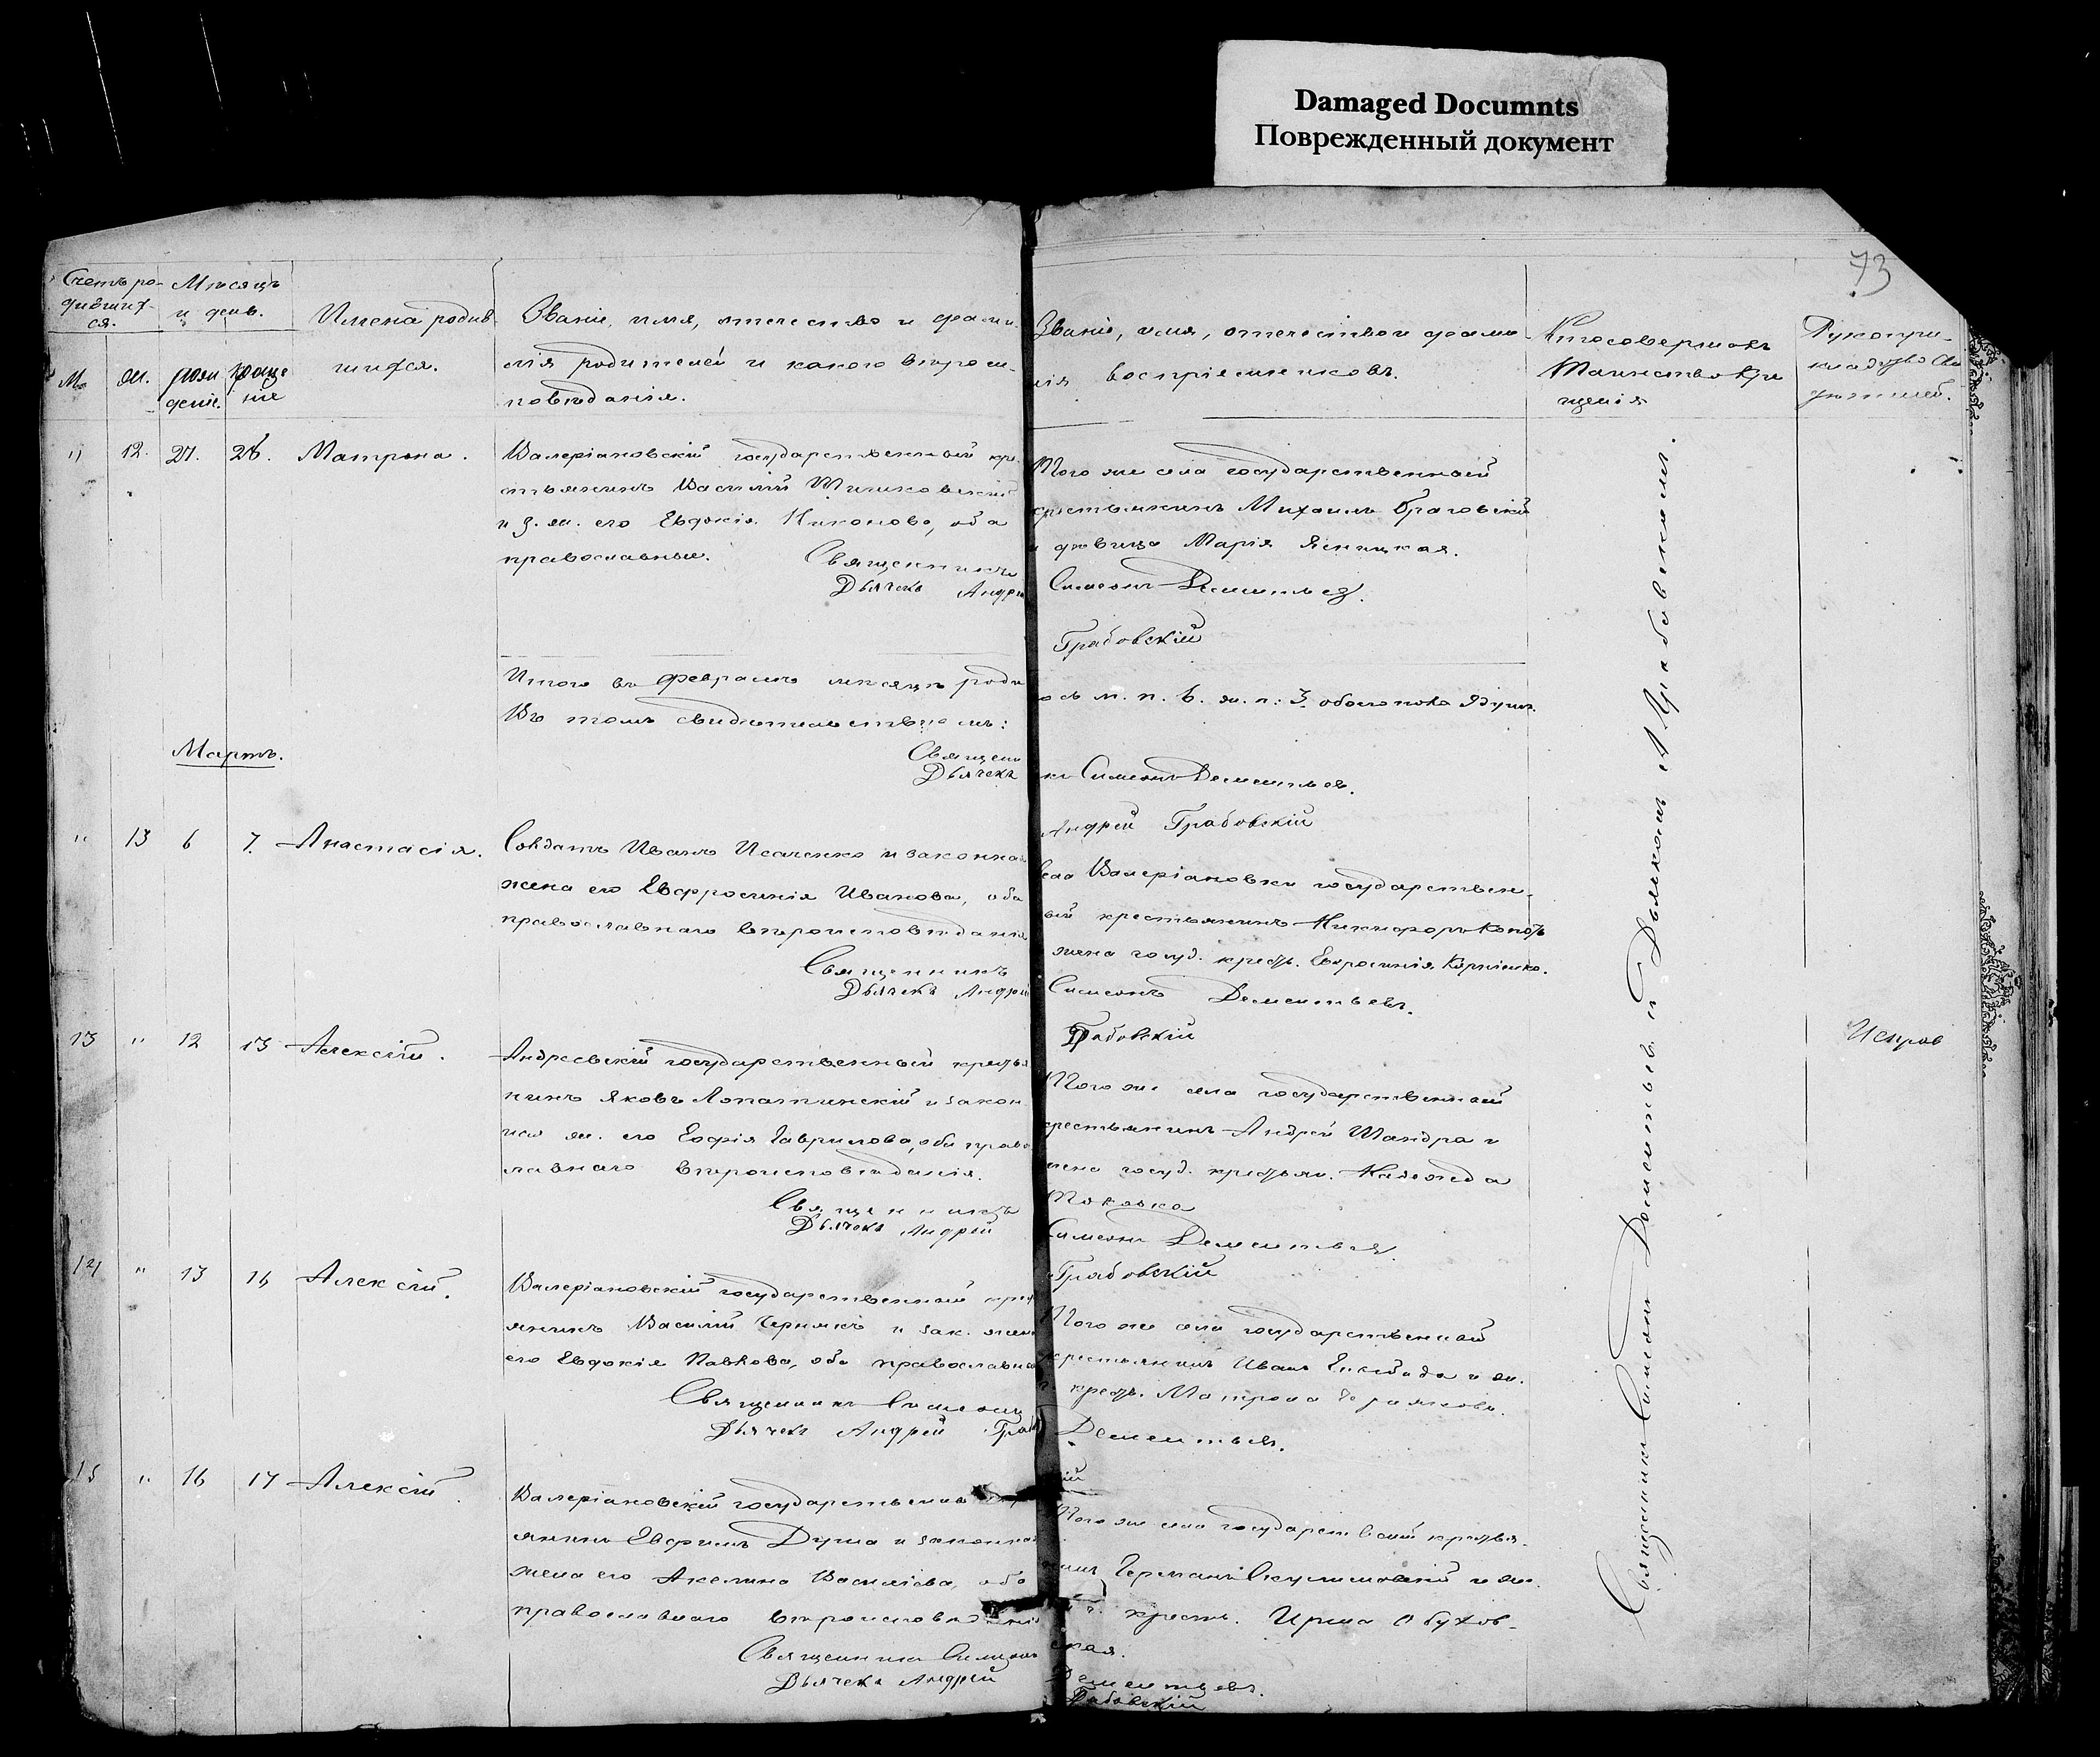 Damaged Documnts
Поврежденный документ
73
Счетъ ро-
дившихся.
Мѣсяцъ
и день.
М.
ж.
рожденіе.
крещеніе
Имена родив
шихся.
Званіе, имя, отечество и фами-
лія родителей и какого вѣроис-
повѣданія.
Званіе, имя, отечество и фами-
лія воспріемниковъ.
Кто совершалъ
таинство кре
щенія
Рукопри-
кладство сви
дѣтелей.
" 12. 27. 28. Матрона.
Валеріановскій государственный кре-
стьянинъ Василій
и з. ж. его Евдокія Никонова, оба
православные.
Священникъ
Дьячекъ Андрей
Того же села государственный
крестьянинъ Михаилъ
и дѣвица Марія Ясницкая.
Симеонъ Дементьев.
Грабовскій
Итого въ февралѣ мѣсяцѣ роди
ось м. п. 6. ж. п: 3. обоего пола 9 душъ.
Въ томъ свидѣтельствуемъ:
Священ
Дьячекъ
къ Симеонъ Дементьев.
Андрей Грабовскій
Мартъ.
" 13 6 7. Анастасія.
Солдатъ Иванъ Исаченко и законная
жена его Евфросинія Иванова, оба
православнаго вѣроисповѣданія
Священникъ
Дьячекъ Андрей
села Валеріановки государствен-
ый крестьянинъ Никифоръ
жена госуд. крест. Евфросинія
Симеонъ Дементьевъ.
Грабовскій
13 " 12 13 Алексій.
Андреевскій государственный крестья
нинъ Яковъ Лопатинскій и закон
ная ж. его Софія Гаврилова, оба право
славнаго вѣроисповѣданія.
Священникъ
Дьячекъ Андрей
Того же села государственный
крестьянинъ Андрей Шандра и
жена госуд. крестьян. Надежда
Симеонъ Дементьев.
Грабовскій
Испров
14 " 13 14 Алексій.
Валеріановскій государственный крест
янинъ Василій Чернякъ и зак. жена
его Евдокія Павлова, оба православна
Священникъ Симеонъ
Дьячекъ Андрей Граб
Того же села государственный
крестьянинъ Иванъ и ж.
г. крест. Матрона Чернякова.
Дементьев.
скій
15 " 16 17 Алексій.
Валеріановскій государственный кр
янинъ Евфимъ Душа и законная
жена его Акелина Василіева, оба
православнаго вѣроисповѣданія
Священникъ Симеонъ
Дьячекъ Андрей
Того же села государствений крестья-
нинъ Германъ и ж.
г. крестъ. Ирина Обухов-
ская.
Дементьевъ.
Грабовскій
Священникъ Симеонъ Дементьевъ и Дьячкомъ А. Грабовскимъ.